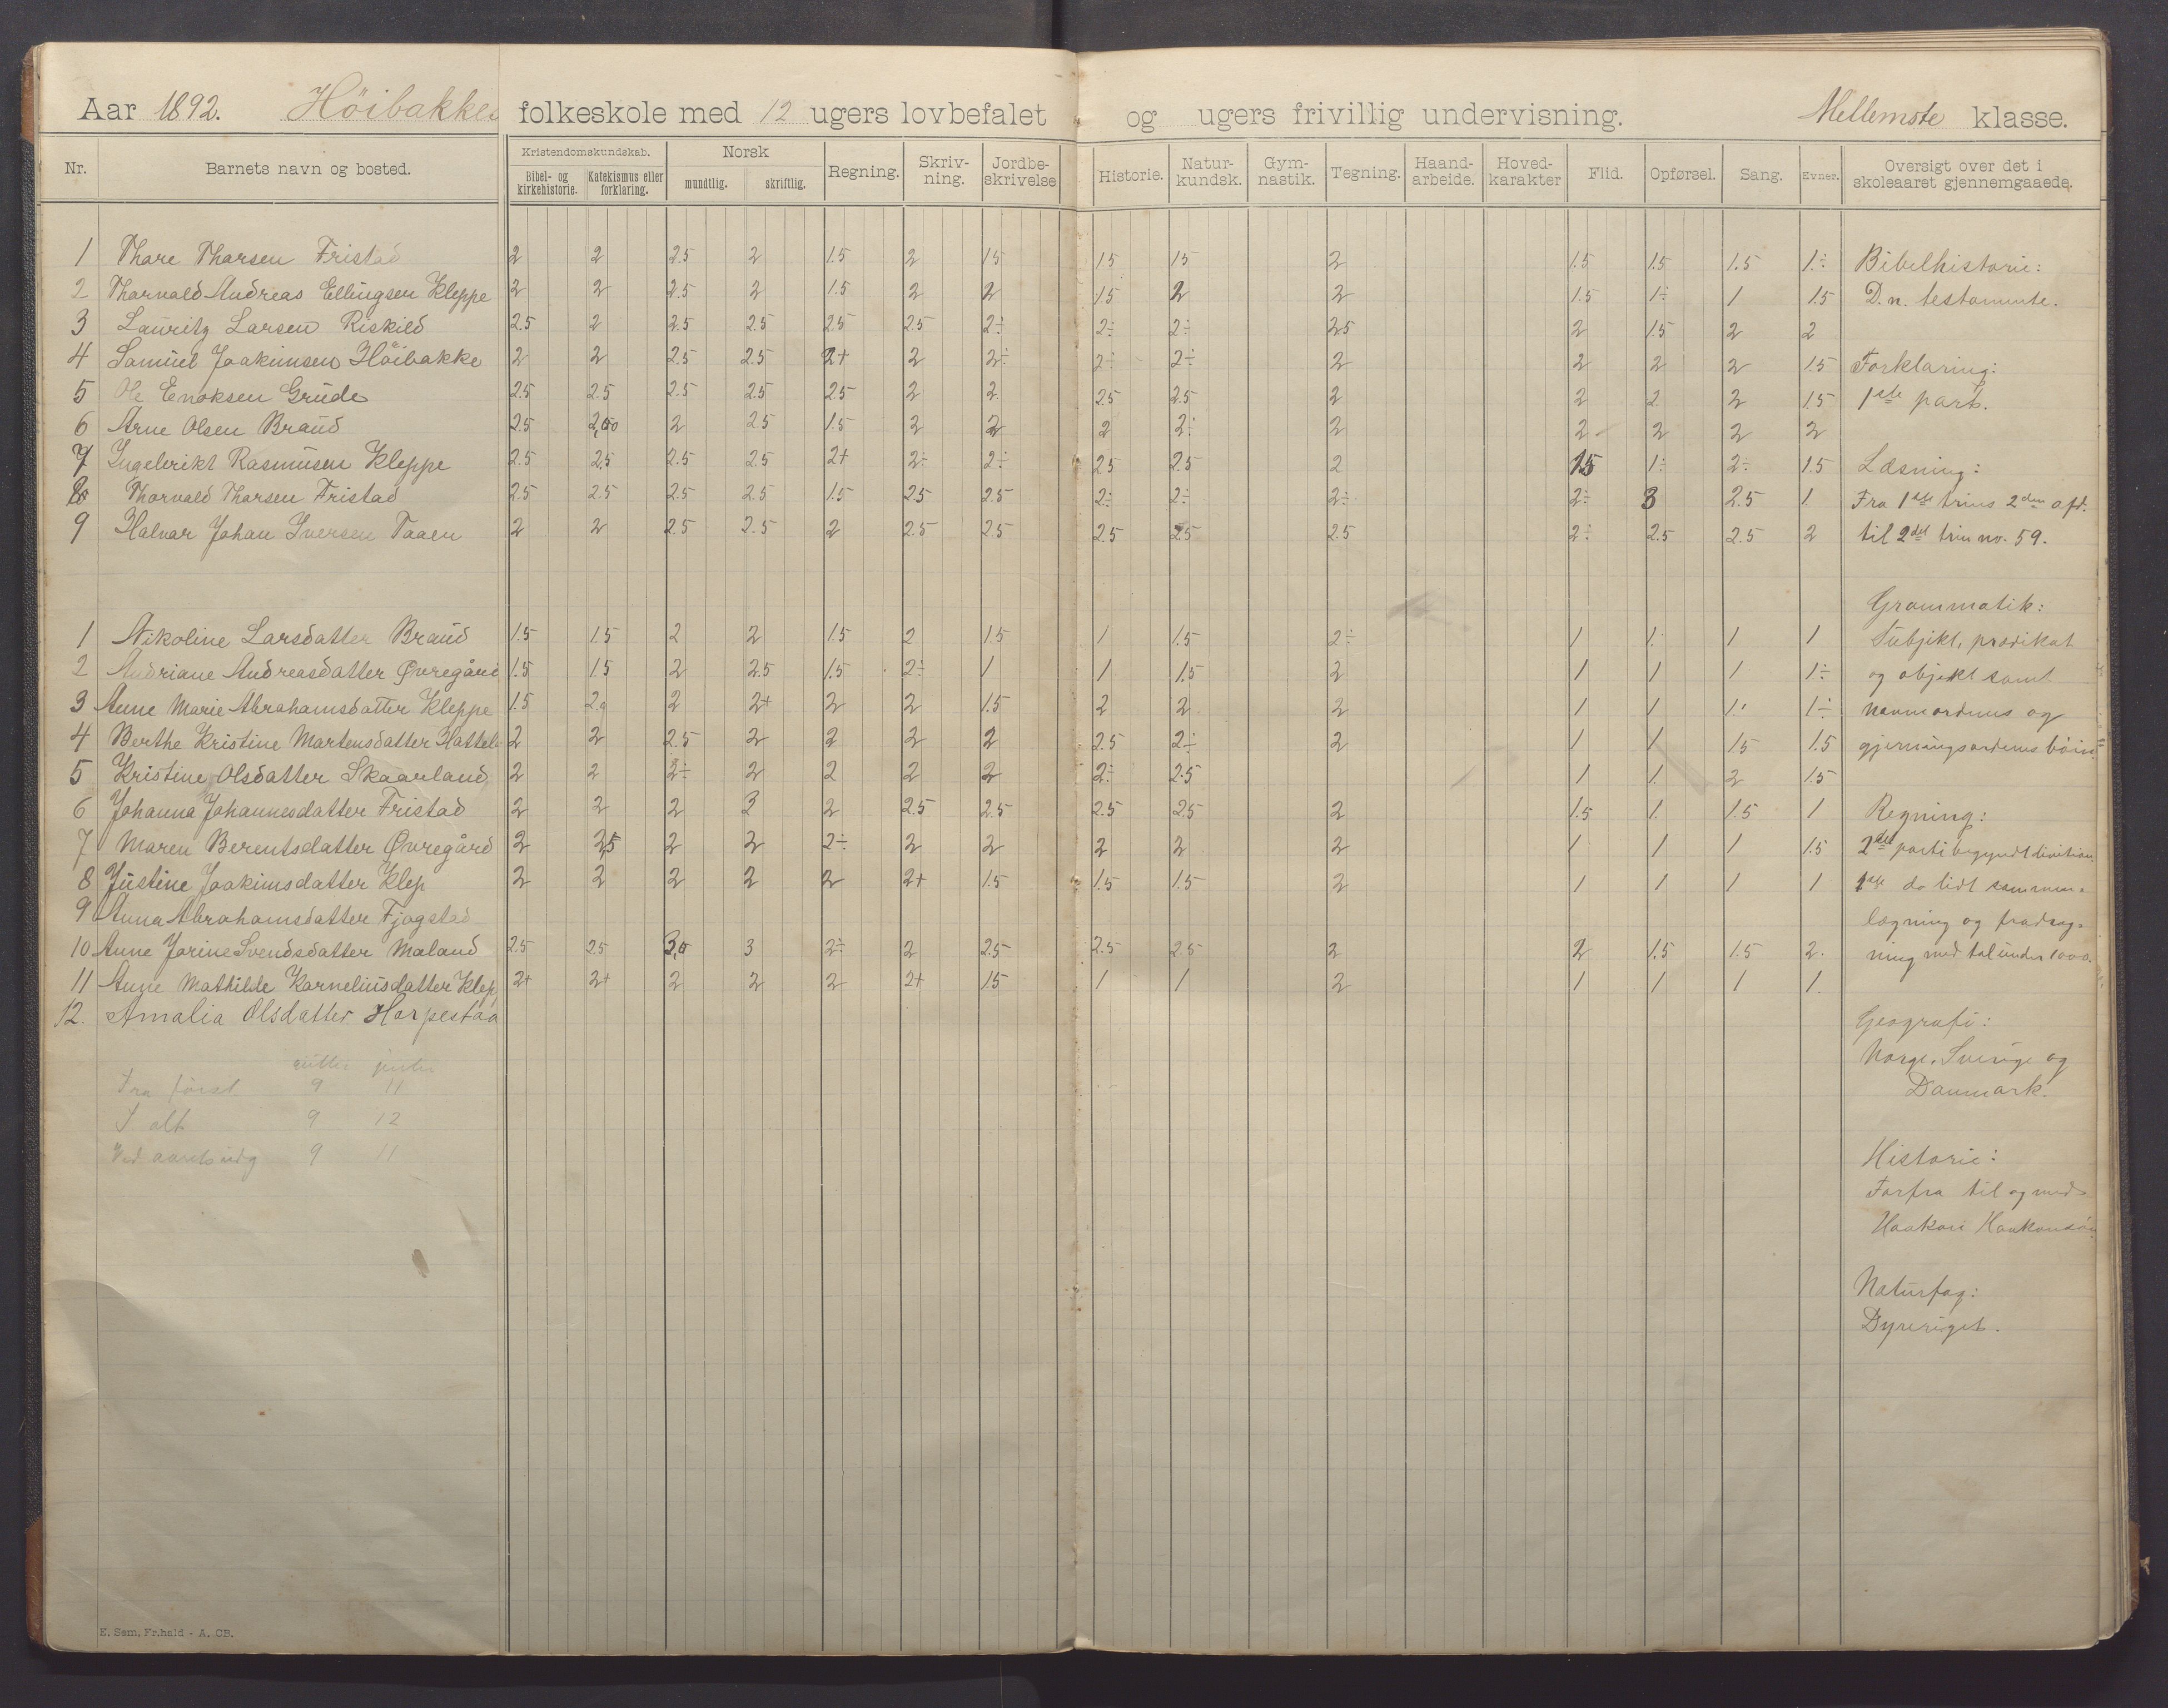 Aar 1892. Höibakke folkeskole med 12 ugers lovbefalet og ugers frivillig undervisning. Mellemste klasse.
Nr. Barnets navn og bosted. Kristendomskundskab. Bibel- og kirkehistorie. Katekismus eller forklaring. Norsk mundtlig. skriftlig. Regning. Skriv-ning. Jordbe-skrivelse Historie. Natur-kundsk. Gym-nastik. Tegning. Haand-arbeide. Hoved-karakter Flid. Opførsel. Sang. Evner. Oversigt over det i skoleaaret gjennemgaaede.
1 Thore Thorsen Fristad 2 2 2.5 2 1.5 2 1.5 1.5 1.5 2 1.5 1.5 1.5 1÷ Bibelhistorie:
2 Thorvald Andreas Ellingsen Kleppe 2 2 2.5 2 1.5 2 2 1.5 2 2 1.5 1÷ 1 1.5 D. n. testamente.
3 Lauritz Larsen Riskild 2.5 2 2.5 2.5 2.5 2.5 2÷ 2÷ 2÷ 2.5 2 1.5 2 2
4 Samuel Joakimsen Höibakke 2 2 2.5 2.5 2+ 2 2÷ 2÷ 2÷ 2 2 2 2 1.5 Forklaring:
5 Ole Enoksen Grude 2.5 2.5 2.5 2.5 2.5 2 2. 2.5 2.5 2 2 2. 2 1.5 1ste part.
6 Arne Olsen Braud 2.5 2 2.5 1.5 2 2 2 2÷ 2 2 2 2 2
7 Ingebrikt Rasmusen Kleppe 2.5 2.5 2.5 2.5 2+ 2÷ 2÷ 2.5 2.5 2 1.5 1÷ 2÷ 1.5 Læsning:
8 Thorvald Thorsen Fristad 2.5 2.5 2.5 2.5 1.5 2.5 2.5 2÷ 2÷ 2÷ 2÷ 3 2.5 1. Fra 1ste trins 2den afd.
9 Halvar Johan Iversen Taaen 2 2 2.5 2.5 2 2.5 2.5 2.5 2.5 2.5 2÷ 2.5 2.5 2 til 2det trin no. 59.
Grammatik:
1 Nikoline Larsdatter Braud 1.5 1.5 2 2 1.5 2 1.5 1 1.5 2÷ 1 1. 1 1 Subjekt, prædikat
2 Andriane Andreasdatter Øvregård 1.5 1.5 2 2.5 1.5 2÷ 1 1 1.5 2 1 1 1 1÷ og objekt samt
3 Anne Marie Abrahamsdatter Kleppe 1.5 2 2 2+ 2 2 1.5 2 2 2 1 1 1. 1÷ navneordenes og
4 Berthe Kristine Martensdatter 2 2 2.5 2 2 2 2 2.5 2÷ 2 1 1 1.5 1.5 gjerningsordenes böin.
5 Kristine Olsdatter Skaarland 2 2 2÷ 2 2 2 2 2÷ 2.5 1 1. 2 1.5
6 Johanna Johannesdatter Fristad 2 2 2 3 2 2.5 2.5 2.5 2.5 2 1.5 1. 1.5 1 Regning:
7 Maren Berentsdatter Øvregård 2 2.5 2 2 2÷ 2 2 2 2 2 1 1 1 1.5 2det parti begyndt division
8 Justine Joakimsdatter Klep 2 2 2 2 2 2+ 1.5 1.5 1.5 2 1 1 1 1 1ste do lidt sammen-
9 Anna Abrahamsdatter Fjogstad lægning og fradrag-
10 Anne Jorine Svendsdatter Maland 2.5 2.5 3,0 3 2÷ 2 2.5 2.5 2.5 2 2 1.5 1.5 2. ning med tal under 1000.
11 Anne Mathilde Karneliusdatter Klep 2+ 2+ 2 2 2 2+ 1.5 1 1 2 1 1 1 1.
12. Amalia Olsdatter Horpestad Geografi:
Norge, Sverige og
Danmark.
gutter jenter
Fra först 9 11
I alt 9 12
Ved aarets udg 9 11
Historie:
Forfra til og med
Haakon Haakonsön.
Naturfag:
Dyreriget.
E. Sem, Fr.hald - A. CB.